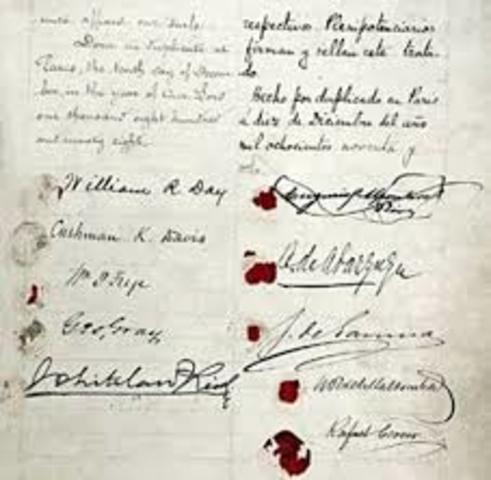 Done in duplicate at
Paris, the tenth day of Decem
ber, in the year of Our Lord
one thousand eight hundred
and ninety eight.
William R Day
Cushman K. Davis
Wm P Frye
Geo. Gray
Whitelaw Reid
respectivos Plenipotenciarios
firman y sellan este trata-
do.
Hecho por duplicado en Paris
á diez de Diciembre del año
mil ochocientos noventa y
B. de Abarzuza
J. de Garnica
W R de Villa Urrutia
Rafael Cerero